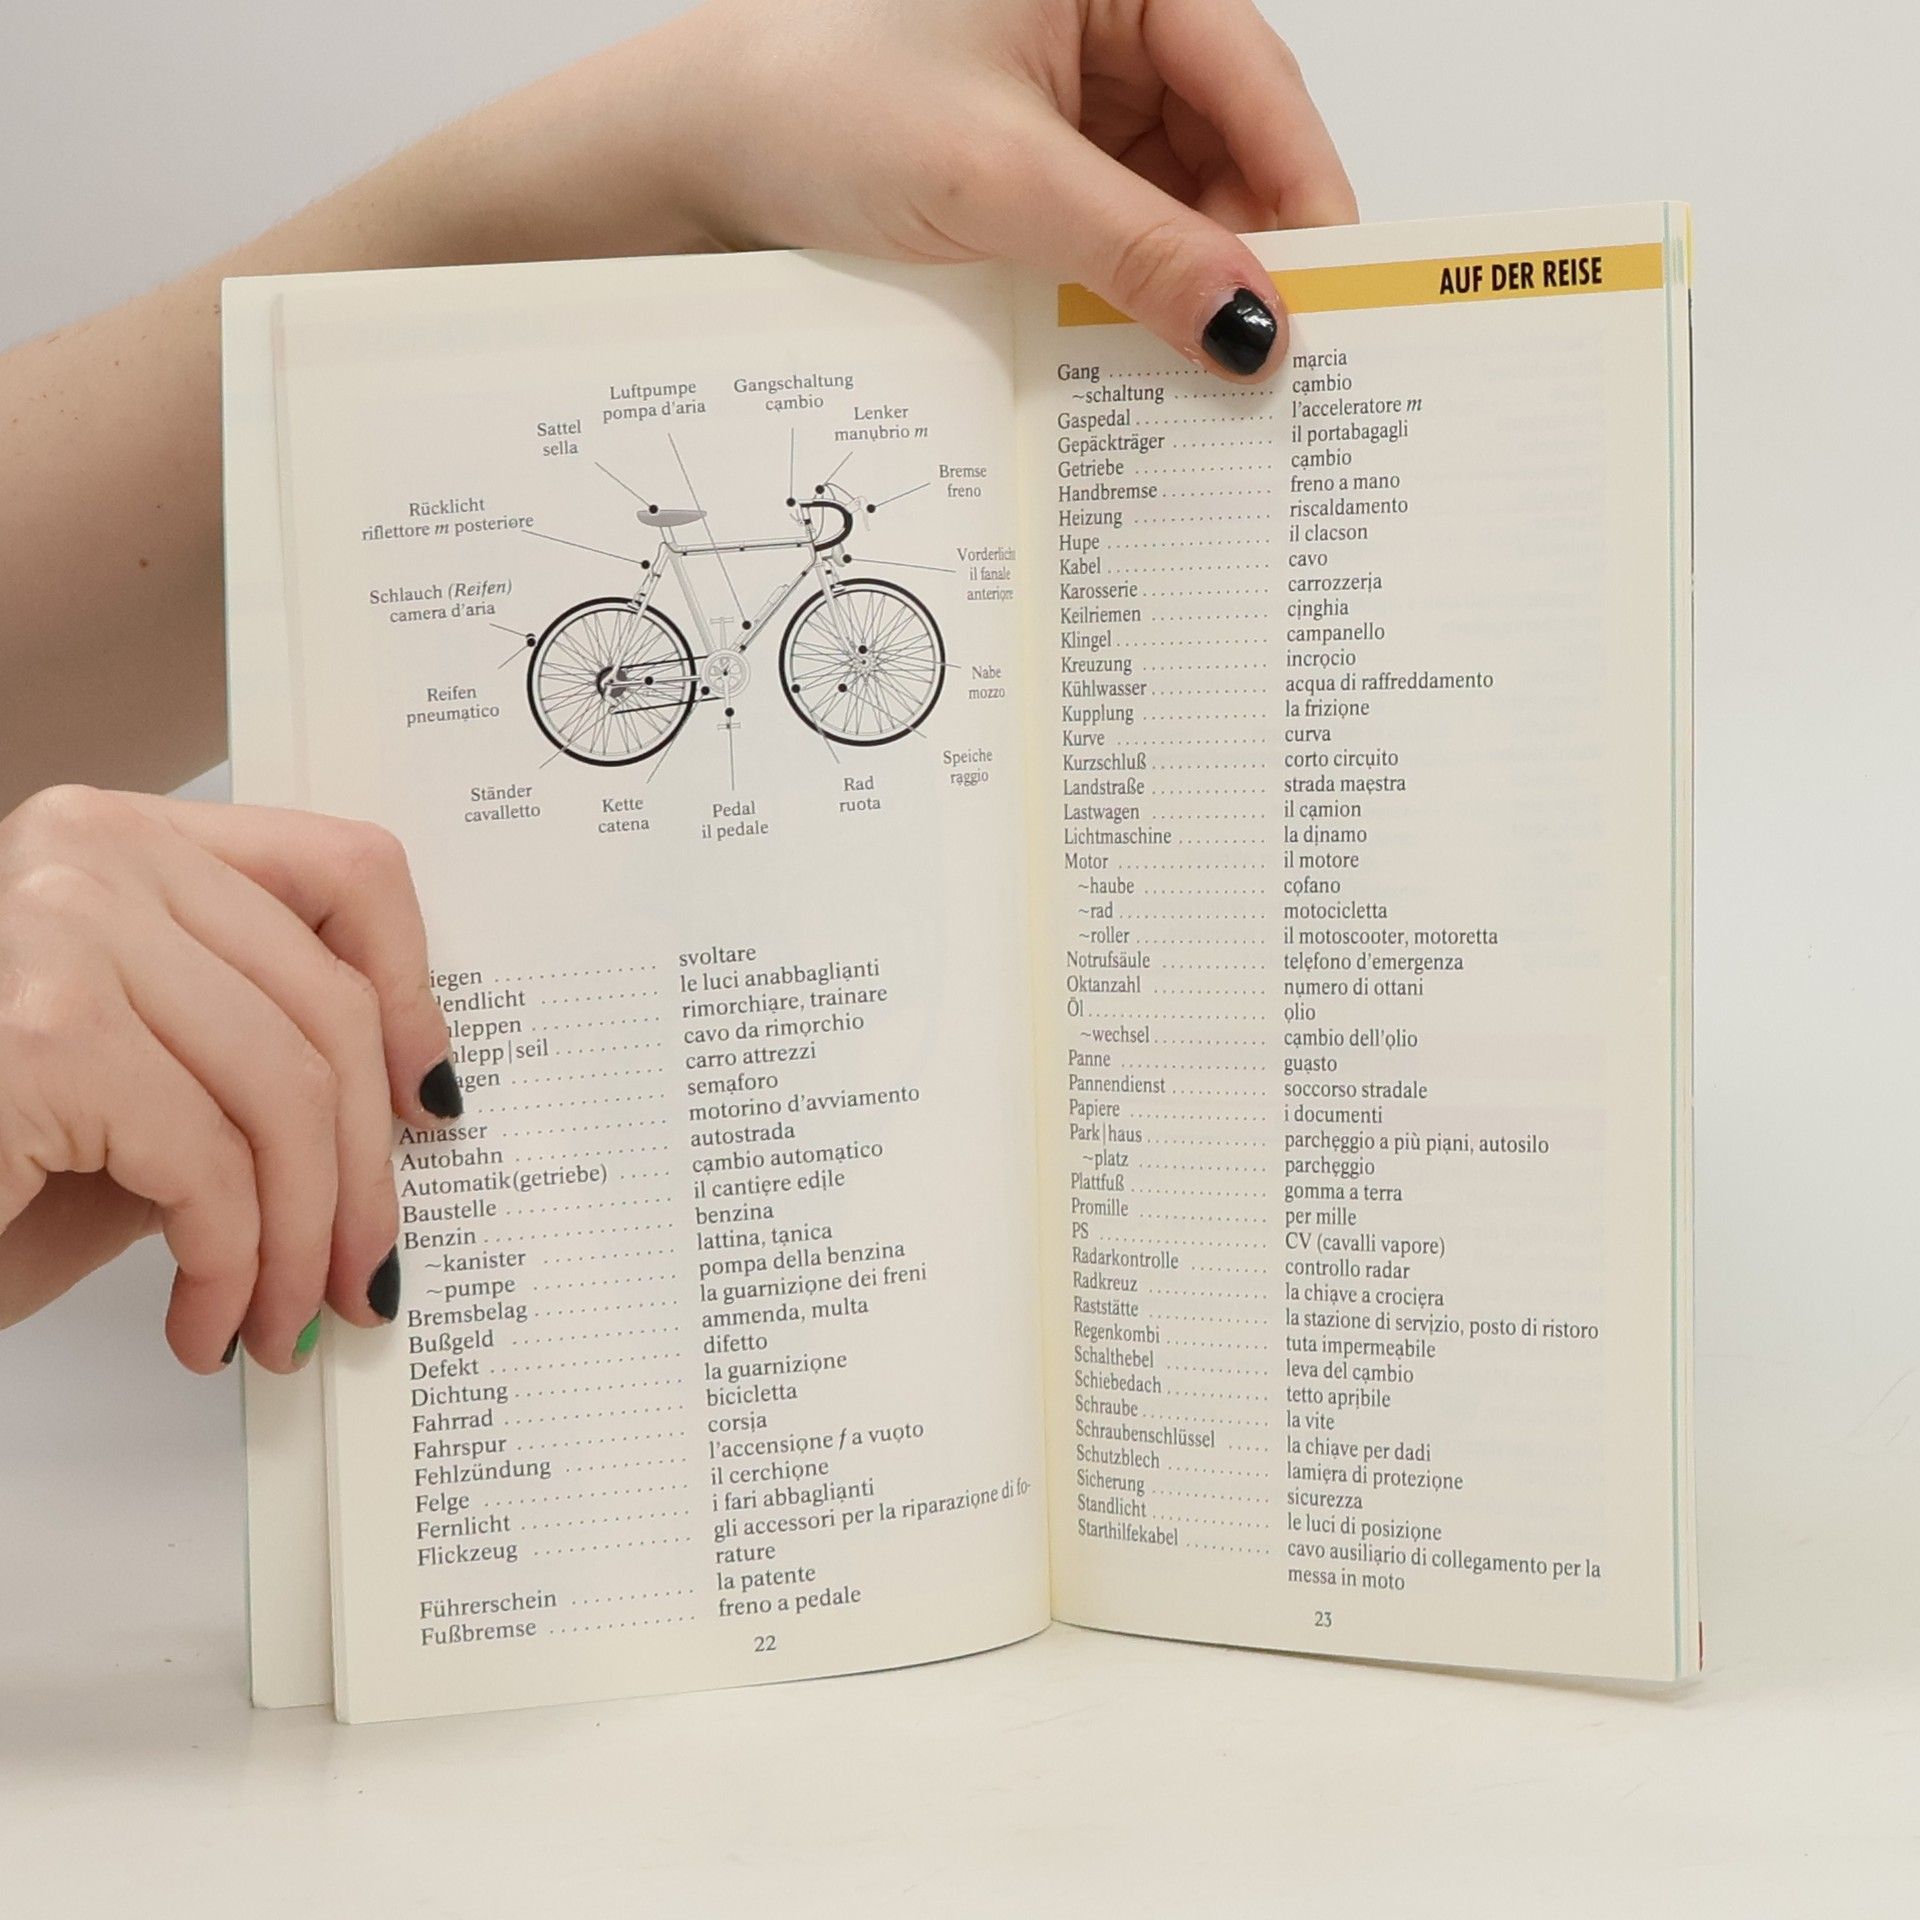 Luftpumpe
pompa d'aria
Gangschaltung
cạmbio
Lenker
manụbrio m
Sattel
sella
Bremse
freno
Rücklicht
riflettore m posteriọre
Vorderlich
il fanale
anteriọre
Schlauch (Reifen)
camera d'aria
Reifen
pneumạtico
Nabe
mozzo
Speiche
rạggio
Ständer
cavalletto
Kette
catena
Pedal
il pedale
Rad
ruota
iegen ............... svoltare
lendlicht ........... le luci anabbagliạnti
leppen ............ rimorchiạre, trainare
lepp|seil .......... cavo da rimọrchio
agen .............. carro attrezzi
.................. semaforo
Anlasser ............... motorino d'avviamento
Autobahn .............. autostrada
Automatik(getriebe) ..... cạmbio automạtico
Baustelle ............... il cantiẹre edịle
Benzin ................. benzina
~kanister ............ lattina, tạnica
~pumpe ............. pompa della benzina
Bremsbelag ............. la guarniziọne dei freni
Bußgeld ............... ammenda, multa
Defekt ................. difetto
Dichtung ............... la guarniziọne
Fahrrad ................ bicicletta
Fahrspur ............... corsịa
Fehlzündung ........... l'accensiọne f a vuọto
Felge .................. il cerchiọne
Fernlicht ............... i fari abbagliạnti
Flickzeug .............. gli accessori per la riparaziọne di fo-
rature
Führerschein ........... la patente
Fußbremse ............. freno a pedale
22
AUF DER REISE
Gang ............ mạrcia
~schaltung ........... cạmbio
Gaspedal ............... l'acceleratore m
Gepäckträger ........... il portabagagli
Getriebe ............... cạmbio
Handbremse ............ freno a mano
Heizung ............... riscaldamento
Hupe .................. il clacson
Kabel .................. cavo
Karosserie .............. carrozzerịa
Keilriemen ............. cịnghia
Klingel ................. campanello
Kreuzung .............. incrọcio
Kühlwasser ............. acqua di raffreddamento
Kupplung .............. la friziọne
Kurve ................. curva
Kurzschluß ............. corto circụito
Landstraße ............. strada maẹstra
Lastwagen ............. il cạmion
Lichtmaschine .......... la dịnamo
Motor ................. il motore
~haube .............. cọfano
~rad ................. motocicletta
~roller ............... il motoscooter, motoretta
Notrufsäule ............ telẹfono d'emergenza
Oktanzahl ............. nụmero di ottani
Öl ..................... ọlio
~wechsel ............. cạmbio dell'ọlio
Panne ................. guạsto
Pannendienst ........... soccorso stradale
Papiere ................ i documenti
Park|haus .............. parchẹggio a più piạni, autosilo
~platz ............... parchẹggio
Plattfuß ................ gomma a terra
Promille ............... per mille
PS .................... CV (cavalli vapore)
Radarkontrolle ......... controllo radar
Radkreuz .............. la chiạve a crociẹra
Raststätte .............. la stazione di servịzio, posto di ristoro
Regenkombi ............ tuta impermeạbile
Schalthebel ............ leva del cạmbio
Schiebedach ............ tetto aprịbile
Schraube ............... la vite
Schraubenschlüssel ..... la chiạve per dadi
Schutzblech ............ lamiẹra di proteziọne
Sicherung .............. sicurezza
Standlicht .............. le luci di posiziọne
Starthilfekabel .......... cavo ausiliạrio di collegamento per la
messa in moto
23